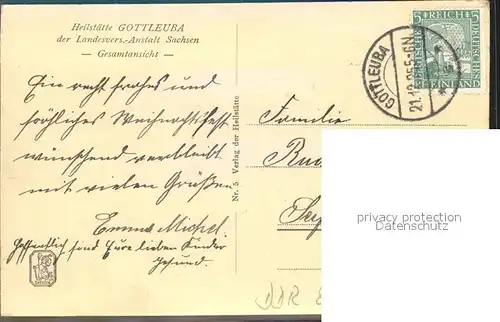 Heilstätte GOTTLEUBA
der Landesvers.-Anstalt Sachsen
— Gesamtansicht —
Ein recht frohes und
fröhliches Weihnachtsfest
wünschend verbleibt
mit vielen Grüßen
Emma Michel.
Hoffentlich sind Eure lieben Kinder
gesund.
Nr. 5 Verlag der Heilstätte
Familie
GOTTLEUBA
21.12.25
5 REICH 5
DEUTSCHES
RHEINLAND
privacy protection
Datenschutz
DDR